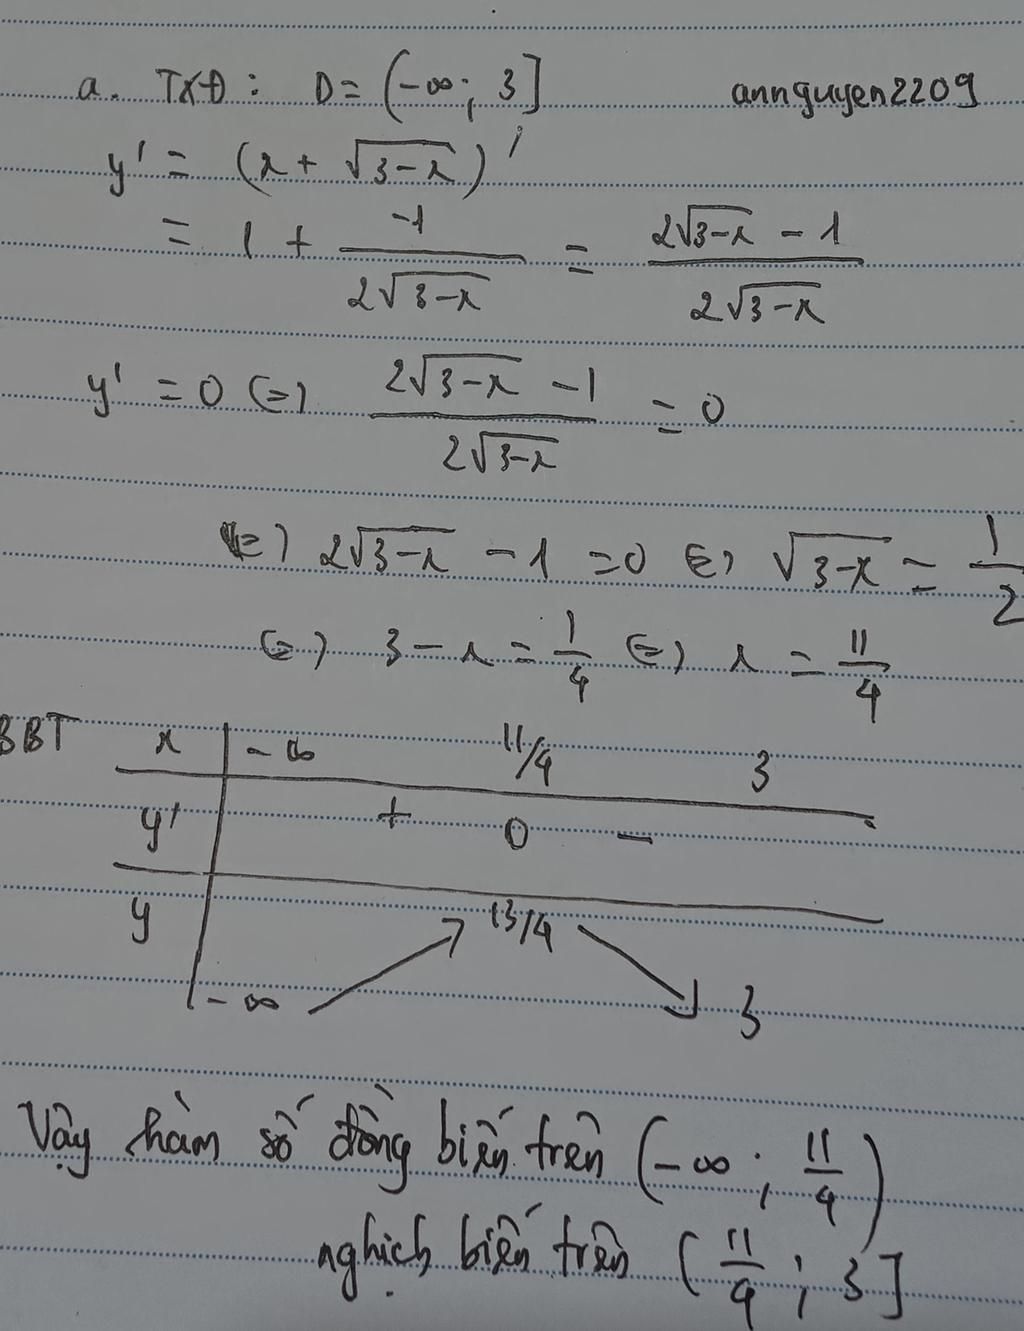 a. TXĐ: D = (-∞; 3] annguyen2209
y' = (x + √(3-x))'
= 1 + (-1)/(2√(3-x)) = (2√(3-x) - 1)/(2√(3-x))
y' = 0 (=) (2√(3-x) - 1)/(2√(3-x)) = 0
(=) 2√(3-x) - 1 = 0 (=) √(3-x) = 1/2
(=) 3 - x = 1/4 (=) x = 11/4
BBT x | -∞ 11/4 3
y' | + 0 -
y | -∞ ↗ 13/4 ↘ 3
Vậy hàm số đồng biến trên (-∞; 11/4)
nghịch biến trên (11/4; 3]